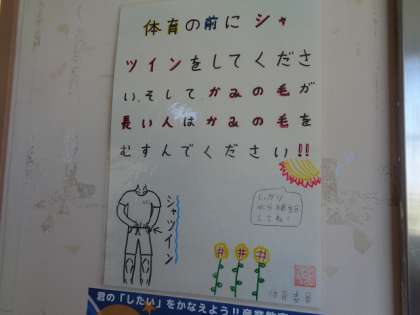 体育の前にシャ
ツインをしてくださ
い、そしてかみの毛が
長い人はかみの毛を
むすんでください!!
シャツイン
しっかり
してね!
君の「したい」をかなえよう!!